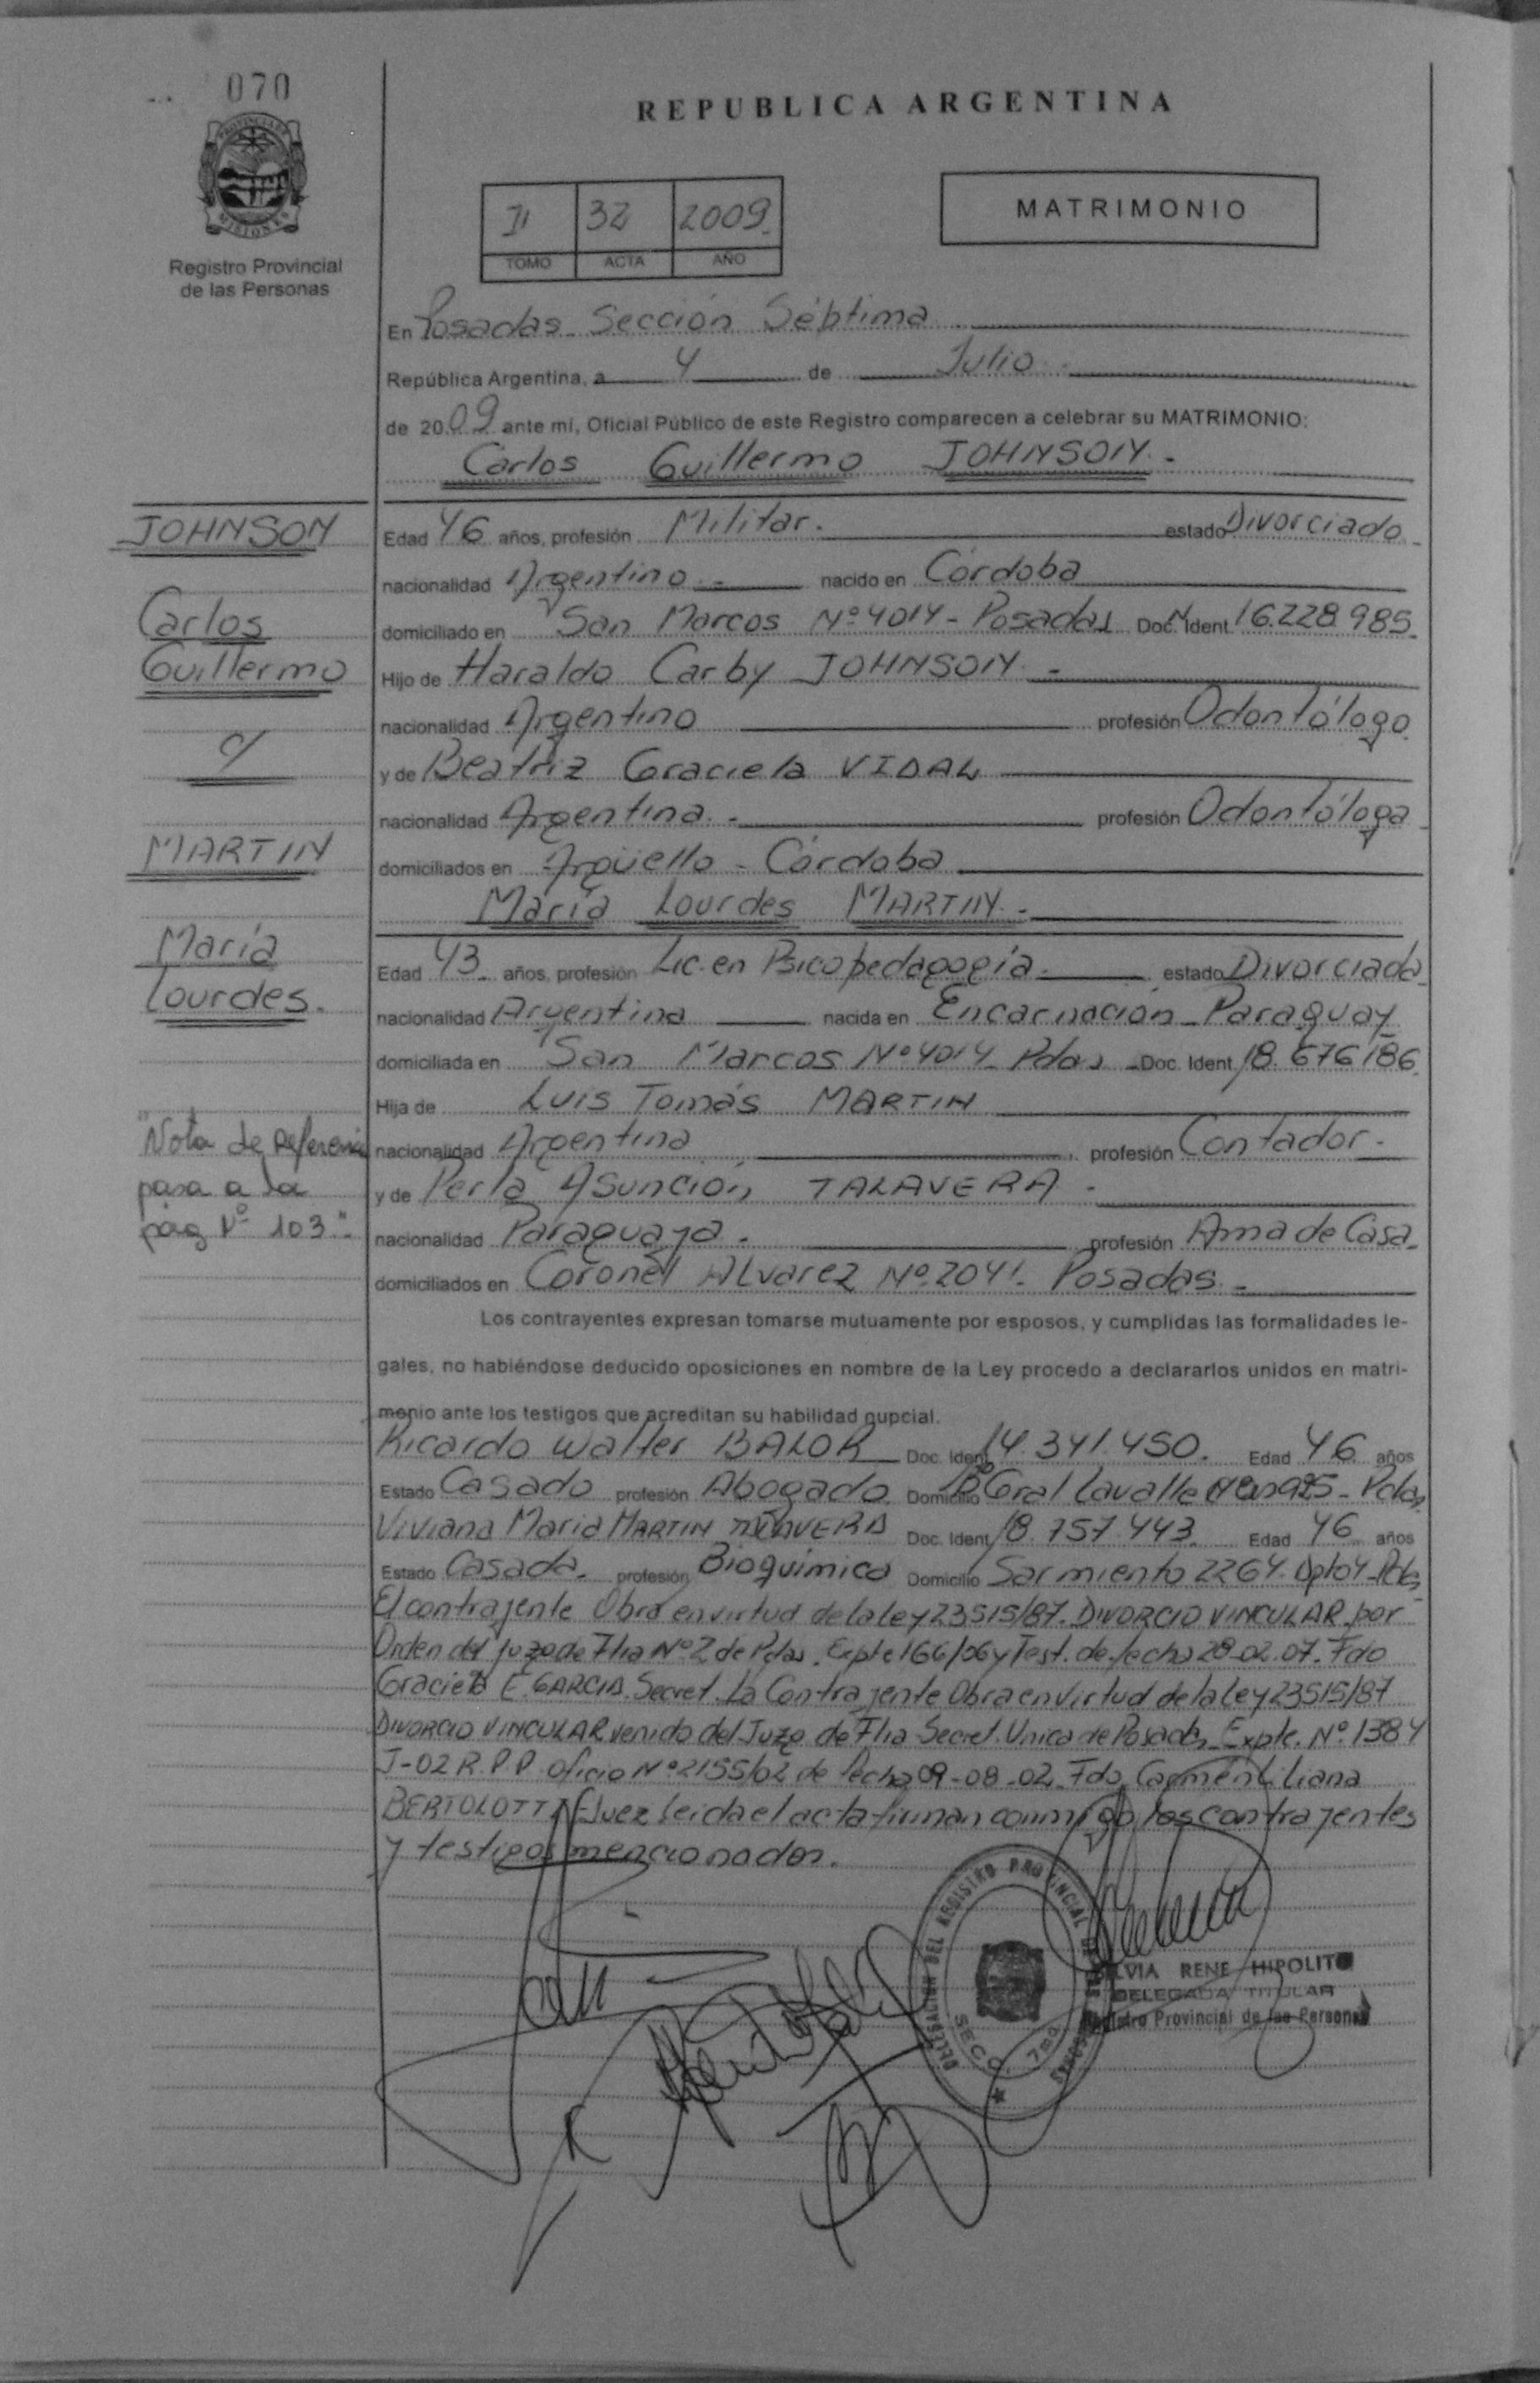 070
REPUBLICA ARGENTINA
PROVINCIA DE MISIONES
Registro Provincial
de las Personas
II 32 2009
TOMO ACTA AÑO
MATRIMONIO
En Posadas - Sección Séptima
República Argentina, a 4 de Julio
de 2009 ante mí, Oficial Público de este Registro comparecen a celebrar su MATRIMONIO:
Carlos Guillermo JOHNSON.-
JOHNSON
Carlos
Guillermo
c/
MARTIN
María
Lourdes.
"Nota de referencia
pasa a la
pág Nº 103".
Edad 46 años, profesión Militar. estado Divorciado
nacionalidad Argentino.- nacido en Córdoba
domiciliado en San Marcos Nº 4014 - Posadas Doc. N Ident. 16.228.985.
Hijo de Haraldo Carby JOHNSON.-
nacionalidad Argentino profesión Odontólogo
y de Beatriz Graciela VIDAL
nacionalidad Argentina.- profesión Odontóloga
domiciliados en Argüello - Córdoba
María Lourdes MARTIN.-
Edad 43 años, profesión Lic. en Psicopedagogía. estado Divorciada
nacionalidad Argentina nacida en Encarnación - Paraguay
domiciliada en San Marcos Nº 4014 - Pdas - Doc. Ident. 18.676.186.
Hija de Luis Tomás MARTIN
nacionalidad Argentina profesión Contador.-
y de Perla Asunción TALAVERA -
nacionalidad Paraguaya. profesión Ama de Casa.
domiciliados en Coronel Alvarez Nº 2041. Posadas.-
Los contrayentes expresan tomarse mutuamente por esposos, y cumplidas las formalidades le-
gales, no habiéndose deducido oposiciones en nombre de la Ley procedo a declararlos unidos en matri-
monio ante los testigos que acreditan su habilidad nupcial.
Ricardo Walter BALOR Doc. Ident. 14.341.450. Edad 46 años
Estado Casado profesión Abogado Domicilio Gral Lavalle - Pdas
Viviana Maria MARTIN TALAVERA Doc. Ident. 18.757.443. Edad 46 años
Estado Casada. profesión Bioquímica Domicilio Sarmiento 2264. Dpto 4 - Pdas
El contrayente Obra en virtud de la ley 23515/87. DIVORCIO VINCULAR por
Orden del Juzg de Flia Nº 2 de Pdas. Expte 166/06 y Test. de fecha 28-02-07. Fdo
Graciela E. GARCIA. Secret. La Contrayente Obra en Virtud de la Ley 23515/87
DIVORCIO VINCULAR venido del Juzg de Flia Secret. Unica de Posadas Expte. Nº 1384
J-02 R.P.P. oficio Nº 2155/02 de fecha 09-08-02. Fdo Carmen Liliana
BERTOLOTTI Juez Leida el acta firman conmigo los contrayentes
y testigos mencionados.
DELEGACION DEL REGISTRO PROVINCIAL DE LAS PERSONAS
SECC. 7ma
SILVIA RENE HIPOLITO
DELEGADA TITULAR
Registro Provincial de las Personas